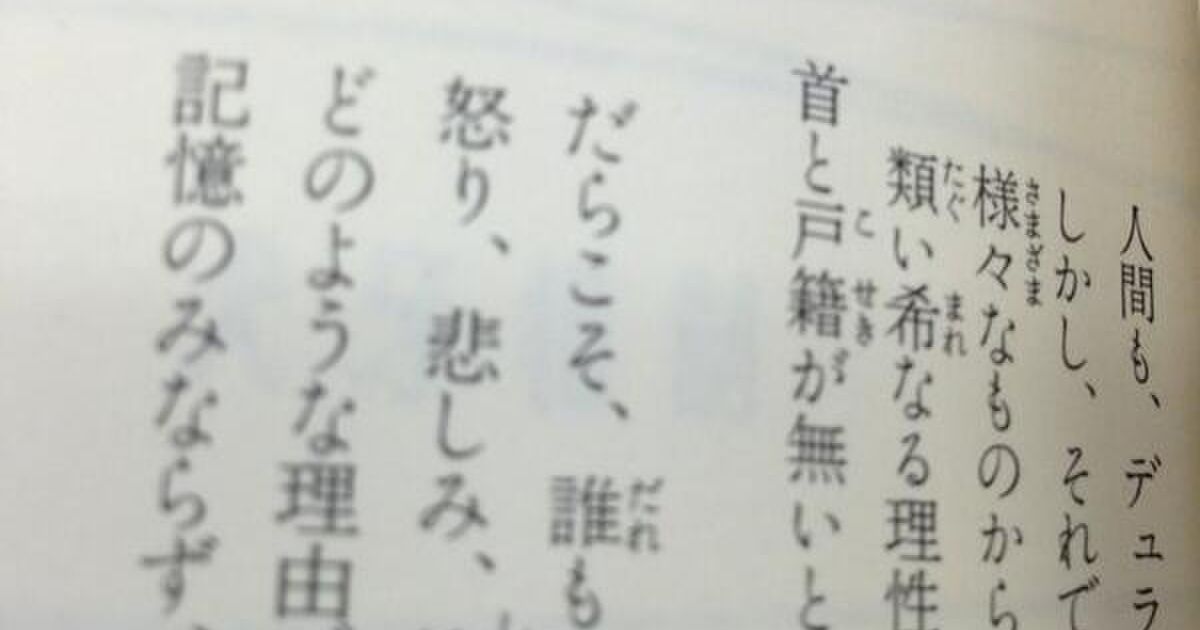 人間も、デュラ
しかし、それで
様々なものから
類い希なる理性
首と戸籍が無いと
だらこそ、誰も
怒り、悲しみ、
どのような理由
記憶のみならず、